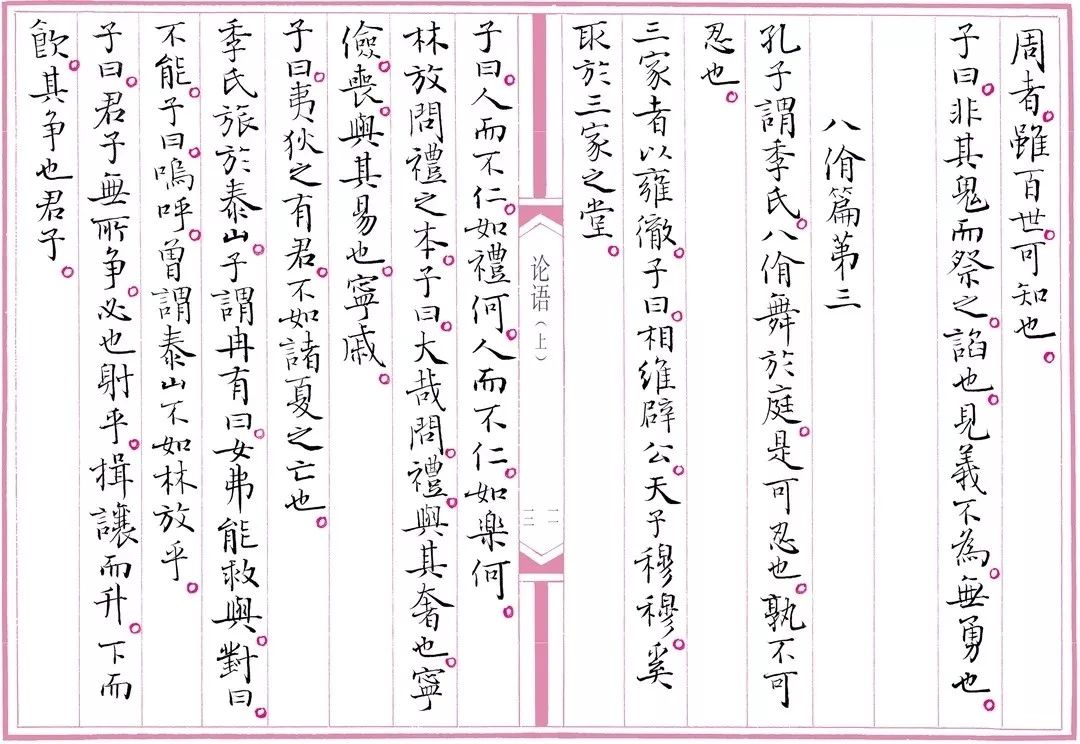 周者。雖百世。可知也。
子曰。非其鬼而祭之。諂也。見義不為。無勇也。
八佾篇第三
孔子謂季氏。八佾舞於庭。是可忍也。孰不可
忍也。
三家者以雍徹。子曰。相維辟公。天子穆穆。奚
取於三家之堂。
论语(上)
一
三
子曰。人而不仁。如禮何。人而不仁。如樂何。
林放問禮之本。子曰。大哉問。禮。與其奢也。寧
儉。喪。與其易也。寧戚。
子曰。夷狄之有君。不如諸夏之亡也。
季氏旅於泰山。子謂冉有曰。女弗能救與。對曰。
不能。子曰。嗚呼。曾謂泰山不如林放乎。
子曰。君子無所争。必也射乎。揖讓而升。下而
飲。其争也君子。